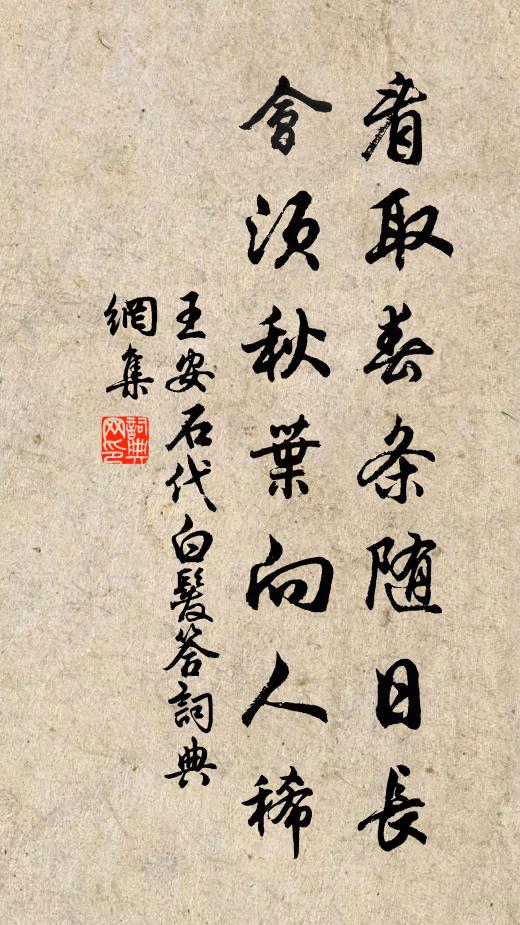 看取春条随日長
會須秋葉向人稀
王安石代白髮答詞典
網集
詞典網印